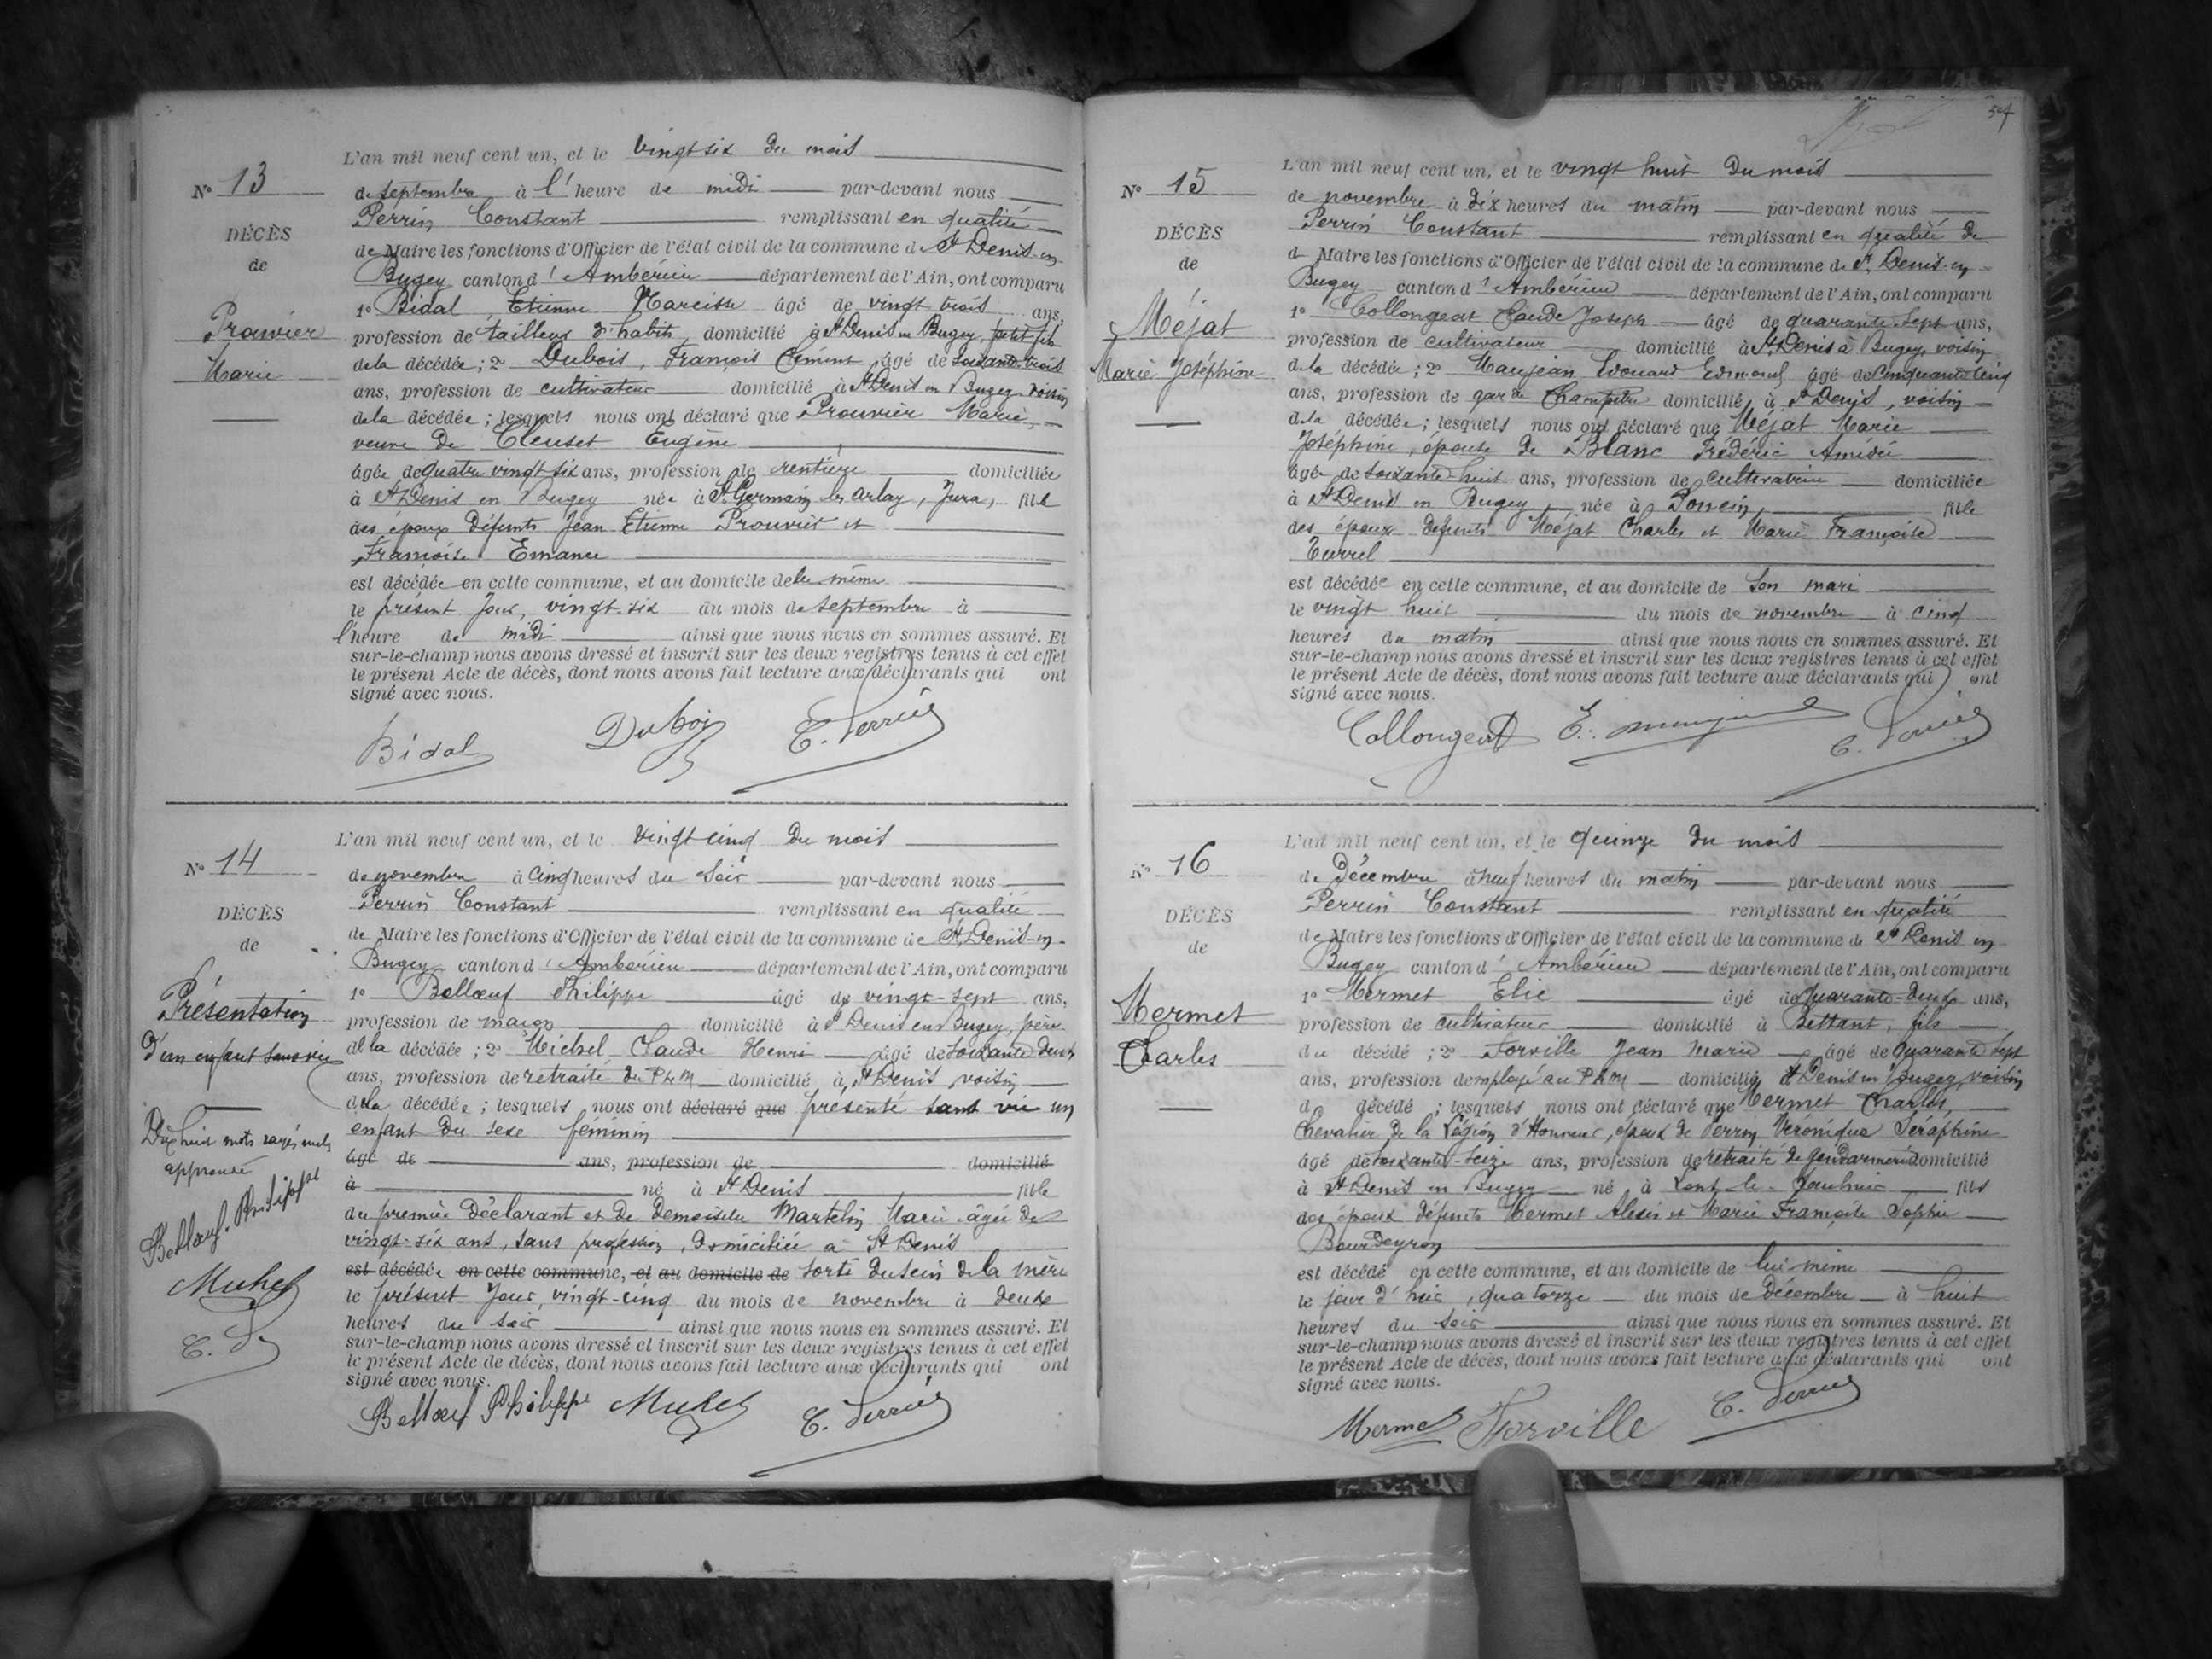 L'an mil neuf cent un, et le vingt six du mois
N° 13
de septembre à l'heure de midi par-devant nous
Perrin Constant remplissant en qualité
DÉCÈS
de Maire les fonctions d'Officier de l'état civil de la commune d St Denis-en-
de
Bugey canton d'Ambérieu département de l'Ain, ont comparu
1° Bidal, Etienne Narcisse âgé de vingt trois ans,
Prouvier
profession de tailleur d'habits, domicilié à St Denis en Bugey, petit fils
Marie
de la décédée ; 2° Dubois, François Clément, âgé de soixante trois
ans, profession de cultivateur domicilié à St Denis en Bugey voisin
de la décédée ; lesquels nous ont déclaré que Prouvier Marie
veuve de Cleuset Eugène
âgée de quatre vingt six ans, profession de rentière domiciliée
à St Denis en Bugey née à St Germain les Arlay, Jura, fille
des époux défunts Jean Etienne Prouvier et
Françoise
est décédée en cette commune, et au domicile de lui même
le présent jour, vingt-six du mois de septembre à
l'heure de midi ainsi que nous nous en sommes assuré. Et
sur-le-champ nous avons dressé et inscrit sur les deux registres tenus à cet effet
le présent Acte de décès, dont nous avons fait lecture aux déclarants qui ont
signé avec nous.
Bidal Dubois C. Perrin
L'an mil neuf cent un, et le vingt cinq du mois
N° 14
de novembre à cinq heures du soir par-devant nous
Perrin Constant remplissant en qualité
DÉCÈS
de Maire les fonctions d'Officier de l'état civil de la commune de St Denis-en-
de
Bugey canton d'Ambérieu département de l'Ain, ont comparu
1° Bellœuf Philippe âgé de vingt-sept ans,
Présentation
profession de maçon domicilié à St Denis en Bugey, père
d'un enfant sans vie
de la décédée ; 2° Michel Claude Henri âgé de soixante deux
ans, profession de retraité du PLM domicilié à St Denis voisin
de la décédée ; lesquels nous ont déclaré que présenté sans vie un
Dix huit mots rayés nuls
enfant du sexe féminin
approuvé
âgé de ans, profession de domicilié
à né à St Denis fille
Bellœuf Philippe
du premier déclarant et de demoiselle Martelin Marie âgée de
vingt-six ans, sans profession, domiciliée à St Denis
est décédée en cette commune, et au domicile de sorti du sein de la mère
Michel
le présent jour, vingt-cinq du mois de novembre à deux
heures du soir ainsi que nous nous en sommes assuré. Et
C. P
sur-le-champ nous avons dressé et inscrit sur les deux registres tenus à cet effet
le présent Acte de décès, dont nous avons fait lecture aux déclarants qui ont
signé avec nous.
Bellœuf Philippe Michel C. Perrin
L'an mil neuf cent un, et le vingt huit du mois
N° 15
de novembre à dix heures du matin par-devant nous
Perrin Constant remplissant en qualité de
DÉCÈS
d Maire les fonctions d'Officier de l'état civil de la commune de St Denis-en-
de
Bugey canton d'Ambérieu département de l'Ain, ont comparu
1° Collongeat Claude Joseph âgé de quarante sept ans,
Méjat
profession de cultivateur domicilié à St Denis à Bugey, voisin
Marie Joséphine
de la décédée ; 2° Maujean Edouard Edmond âgé de cinquante cinq
ans, profession de garde champêtre domicilié à St Denis, voisin
de la décédée ; lesquels nous ont déclaré que Méjat Marie
Joséphine, épouse de Blanc Frédéric Amédée
âgée de soixante-huit ans, profession de cultivatrice domiciliée
à St Denis en Bugey née à Poncin, fille
des époux défunts Méjat Charles et Marie Françoise
Turrel
est décédée en cette commune, et au domicile de son mari
le vingt huit du mois de novembre à cinq
heures du matin ainsi que nous nous en sommes assuré. Et
sur-le-champ nous avons dressé et inscrit sur les deux registres tenus à cet effet
le présent Acte de décès, dont nous avons fait lecture aux déclarants qui ont
signé avec nous.
Collongeat E. Maujean C. Perrin
L'an mil neuf cent un, et le quinze du mois
N° 16
de Décembre à neuf heures du matin par-devant nous
Perrin Constant remplissant en qualité
DÉCÈS
de Maire les fonctions d'Officier de l'état civil de la commune de St Denis en
de
Bugey canton d'Ambérieu département de l'Ain, ont comparu
1° Mermet Elie âgé de quarante-deux ans,
Mermet
profession de cultivateur domicilié à Bettant, fils
Charles
du décédé ; 2° Forville Jean Marie âgé de quarante sept
ans, profession d'employé au PLM domicilié St Denis en Bugey, voisin
d décédé ; lesquels nous ont déclaré que Mermet Charles,
Chevalier de la Légion d'Honneur, époux de Perrin Véronique Séraphine
âgé de soixante-seize ans, profession de retraité de gendarmerie domicilié
à St Denis en Bugey né à fils
des époux défunts Mermet Alexis et Marie Françoise Sophie
Bourdeyron
est décédé en cette commune, et au domicile de lui-même
le jour d'hier, quatorze du mois de Décembre à huit
heures du soir ainsi que nous nous en sommes assuré. Et
sur-le-champ nous avons dressé et inscrit sur les deux registres tenus à cet effet
le présent Acte de décès, dont nous avons fait lecture aux déclarants qui ont
signé avec nous.
Mermet Forville C. Perrin